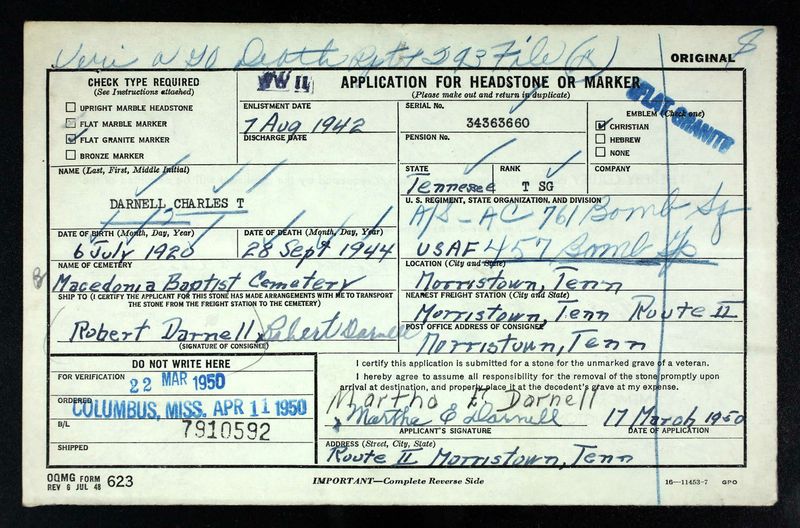 Death Rpt 293 File (A)
ORIGINAL 8
CHECK TYPE REQUIRED
(See Instructions attached)
UPRIGHT MARBLE HEADSTONE
FLAT MARBLE MARKER
FLAT GRANITE MARKER
BRONZE MARKER
WW II
APPLICATION FOR HEADSTONE OR MARKER
(Please make out and return in duplicate)
ENLISTMENT DATE
7 Aug 1942
DISCHARGE DATE
SERIAL No.
34363660
PENSION No.
EMBLEM (Check one)
CHRISTIAN
HEBREW
NONE
FLAT GRANITE
NAME (Last, First, Middle Initial)
DARNELL CHARLES T
STATE
Tennessee
RANK
T SG
COMPANY
U. S. REGIMENT, STATE ORGANIZATION, AND DIVISION
A/S-AC 761 Bomb Sq
USAF 457 Bomb Gp
DATE OF BIRTH (Month, Day, Year)
6 July 1920
DATE OF DEATH (Month, Day, Year)
28 Sept 1944
NAME OF CEMETERY
Macedonia Baptist Cemetery
LOCATION (City and State)
Morristown, Tenn
SHIP TO (I CERTIFY THE APPLICANT FOR THIS STONE HAS MADE ARRANGEMENTS WITH ME TO TRANSPORT
THE STONE FROM THE FREIGHT STATION TO THE CEMETERY)
Robert Darnell Robert Darnell
(SIGNATURE OF CONSIGNEE)
NEAREST FREIGHT STATION (City and State)
Morristown, Tenn Route II
POST OFFICE ADDRESS OF CONSIGNEE
Morristown, Tenn
DO NOT WRITE HERE
FOR VERIFICATION
22 MAR 1950
ORDERED
COLUMBUS, MISS. APR 11 1950
B/L
7910592
SHIPPED
I certify this application is submitted for a stone for the unmarked grave of a veteran.
I hereby agree to assume all responsibility for the removal of the stone promptly upon
arrival at destination, and properly place it at the decedent's grave at my expense.
Martha E Darnell
Martha E Darnell 17 March 1950
APPLICANT'S SIGNATURE DATE OF APPLICATION
ADDRESS (Street, City, State)
Route II Morristown, Tenn
OQMG FORM 623
REV 6 JUL 48
IMPORTANT—Complete Reverse Side
16—11453-7 GPO